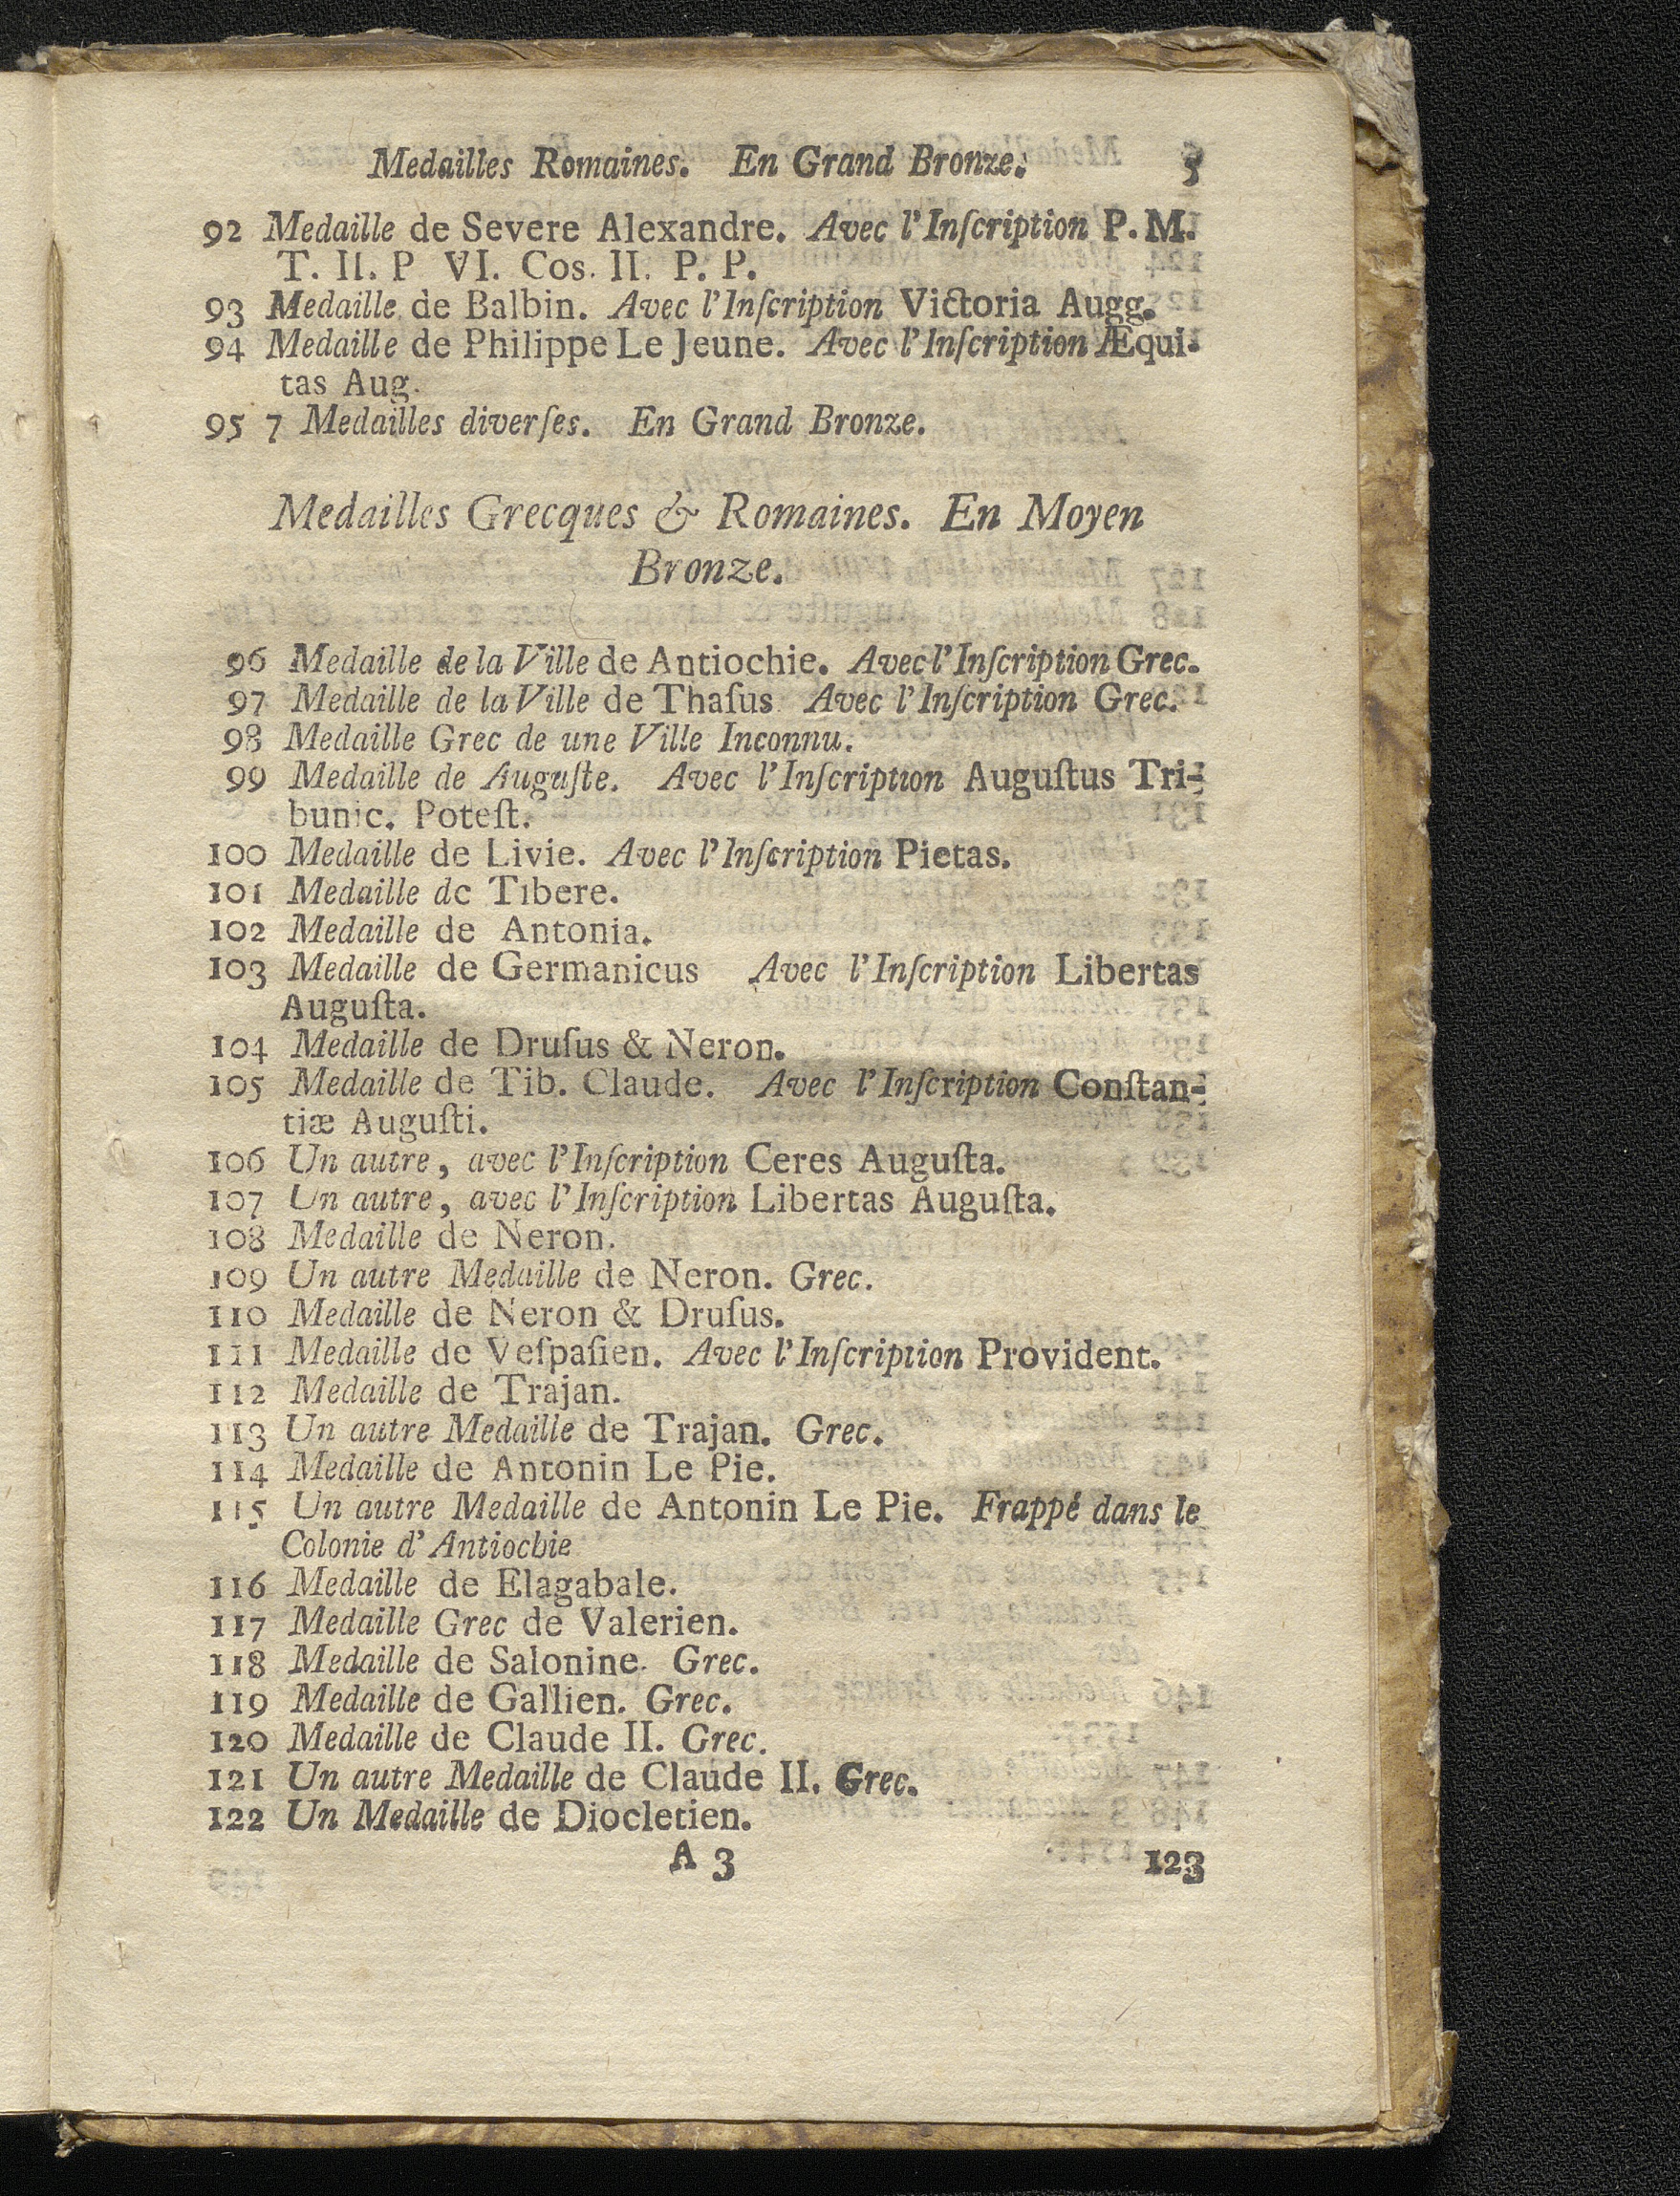 Medailles Romaines. En Grand Bronze. 5
92 Medaille de Severe Alexandre. Avec l'Inſcription P. M.
T. II. P VI. Cos. II. P. P.
93 Medaille de Balbin. Avec l'Inſcription Victoria Augg.
94 Medaille de Philippe Le Jeune. Avec l'Inſcription Æqui-
tas Aug.
95 7 Medailles diverſes. En Grand Bronze.
Medailles Grecques & Romaines. En Moyen
Bronze.
96 Medaille de la Ville de Antiochie. Avec l'Inſcription Grec.
97 Medaille de la Ville de Thaſus Avec l'Inſcription Grec.
98 Medaille Grec de une Ville Inconnu.
99 Medaille de Auguſte. Avec l'Inſcription Auguſtus Tri-
bunic. Poteſt.
100 Medaille de Livie. Avec l'Inſcription Pietas.
101 Medaille de Tibere.
102 Medaille de Antonia.
103 Medaille de Germanicus Avec l'Inſcription Libertas
Auguſta.
104 Medaille de Druſus & Neron.
105 Medaille de Tib. Claude. Avec l'Inſcription Conſtan-
tiæ Auguſti.
106 Un autre, avec l'Inſcription Ceres Auguſta.
107 Un autre, avec l'Inſcription Libertas Auguſta.
108 Medaille de Neron.
109 Un autre Medaille de Neron. Grec.
110 Medaille de Neron & Druſus.
111 Medaille de Veſpaſien. Avec l'Inſcription Provident.
112 Medaille de Trajan.
113 Un autre Medaille de Trajan. Grec.
114 Medaille de Antonin Le Pie.
115 Un autre Medaille de Antonin Le Pie. Frappé dans le
Colonie d'Antiochie
116 Medaille de Elagabale.
117 Medaille Grec de Valerien.
118 Medaille de Salonine. Grec.
119 Medaille de Gallien. Grec.
120 Medaille de Claude II. Grec.
121 Un autre Medaille de Claude II. Grec.
122 Un Medaille de Diocletien.
A 3 123